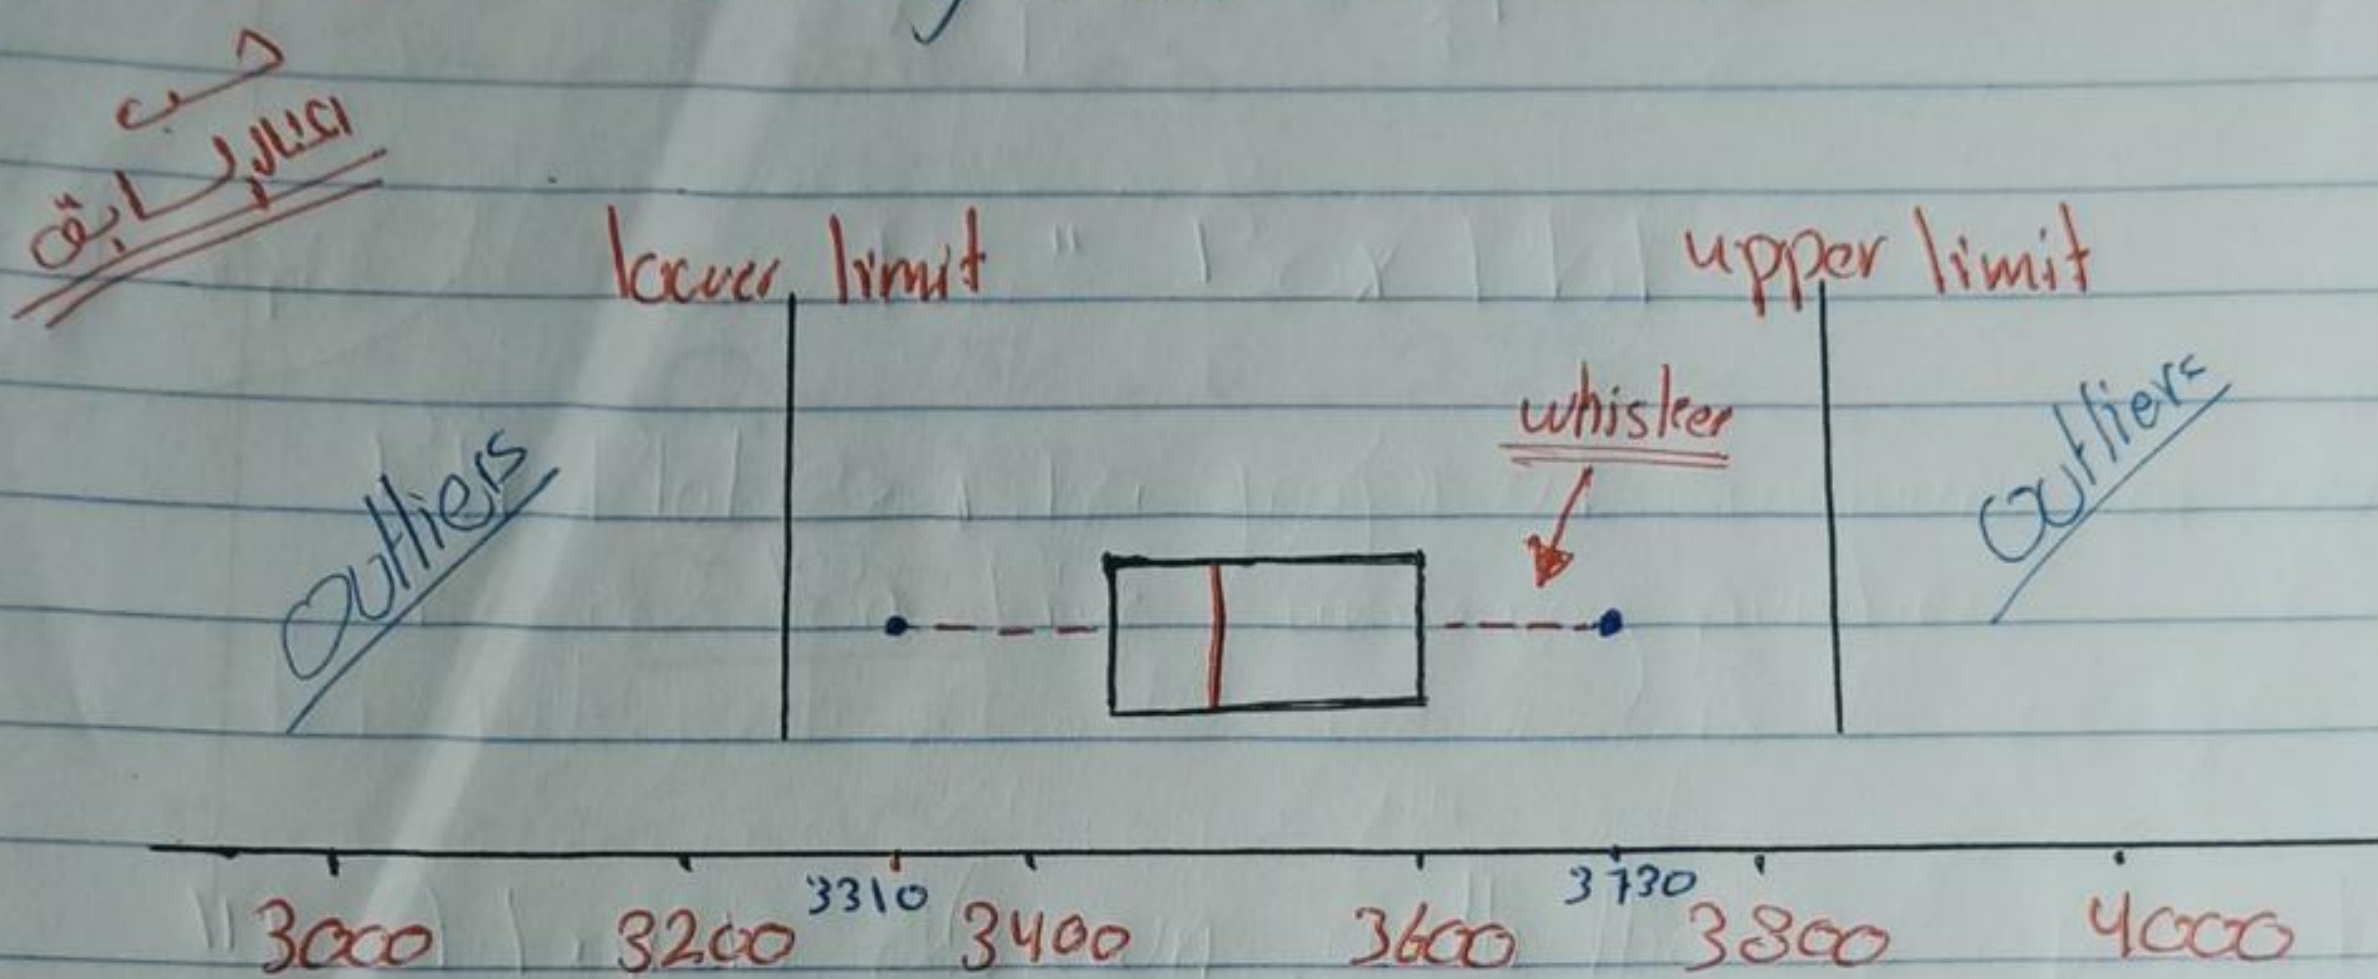 حسب
المثال السابق
lower limit
upper limit
whisker
outliers
outliers
3310
3730
3000 3200 3400 3600 3800 4000